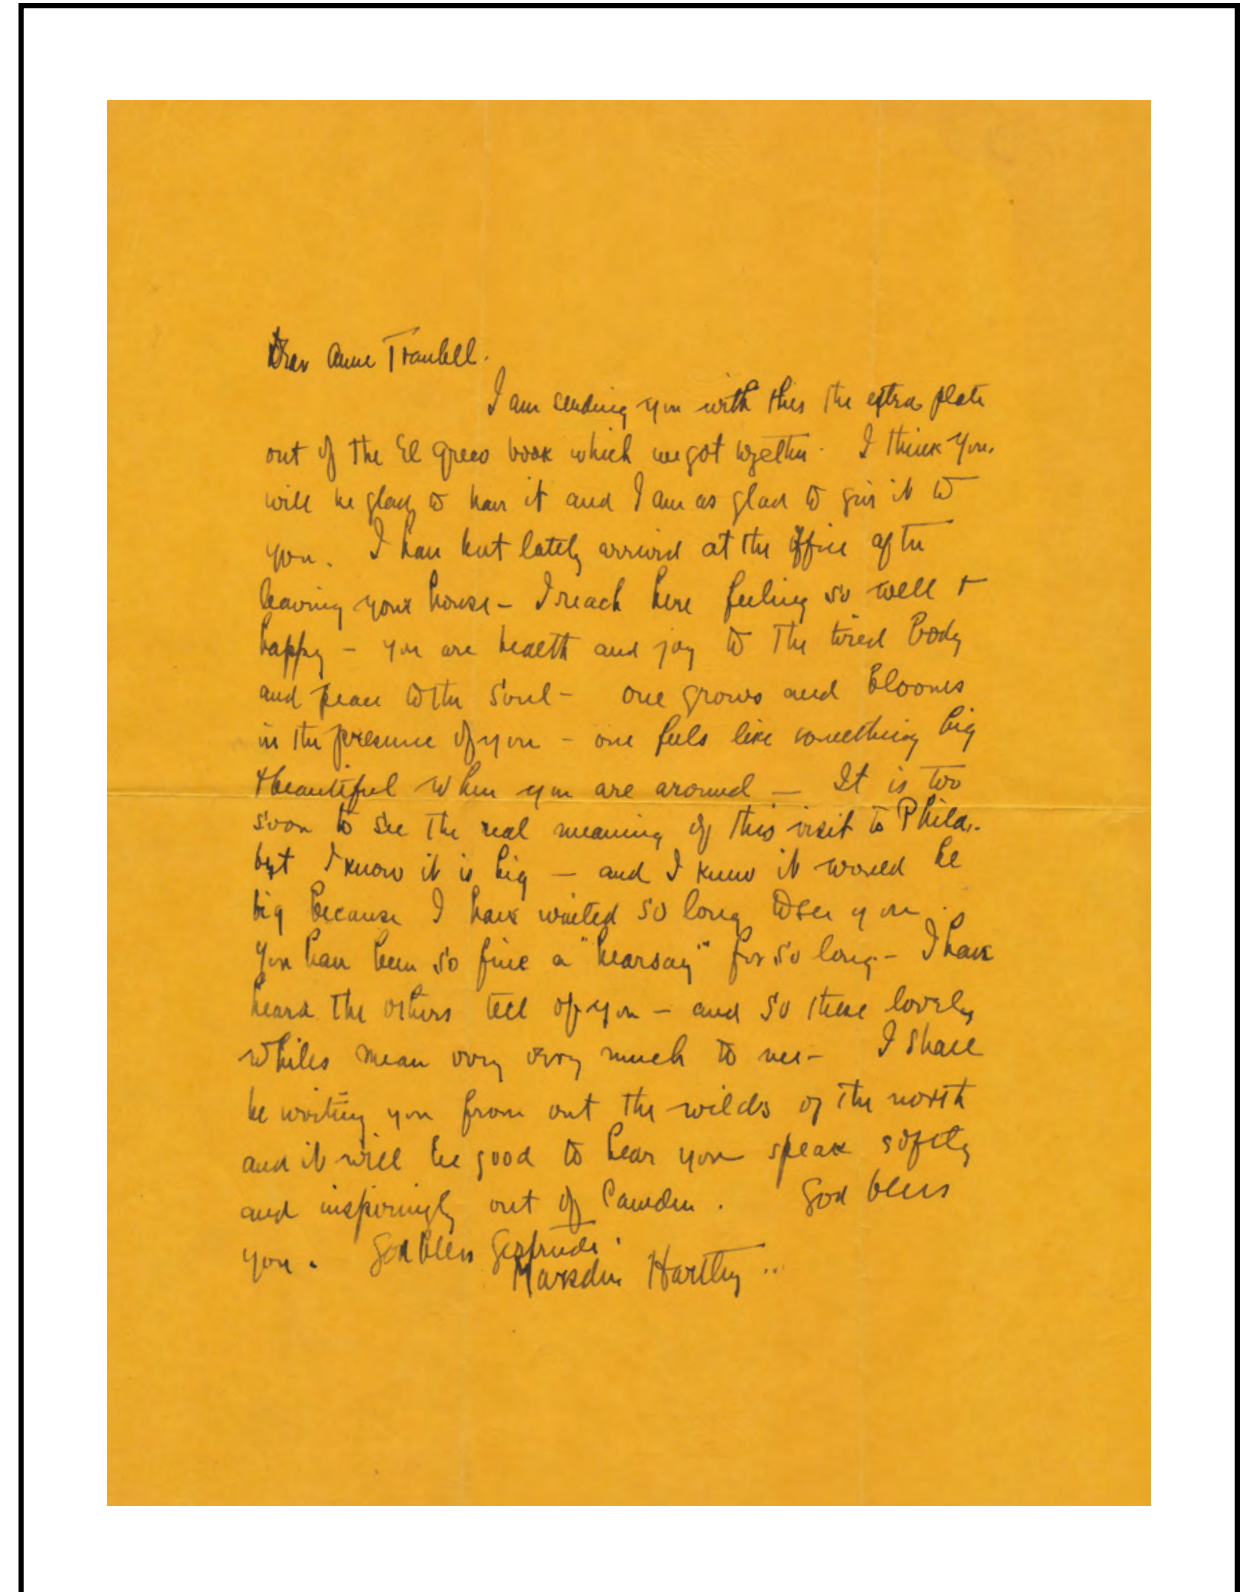 Dear Anne Traubell.
I am sending you with this the extra plate
out of the El Greco book which we got together. I think you
will be glad to have it and I am as glad to give it to
you. I have but lately arrived at the office after
leaving your house – I reach here feeling so well +
happy – you are health and joy to the tired body
and peace to the soul – one grows and blooms
in the presence of you – one feels like something big
+ beautiful when you are around – It is too
soon to see the real meaning of this visit to Phila.
but I know it is big – and I knew it would be
big because I have waited so long to see you.
You have been so fine a "hearsay" for so long – I have
heard the others tell of you – and so these lovely
whiles mean very very much to me – I shall
be writing you from out the wilds of the north
and it will be good to hear you speak softly
and inspiringly out of Camden. God bless
you. God bless Gertrude.
Marsden Hartley ..